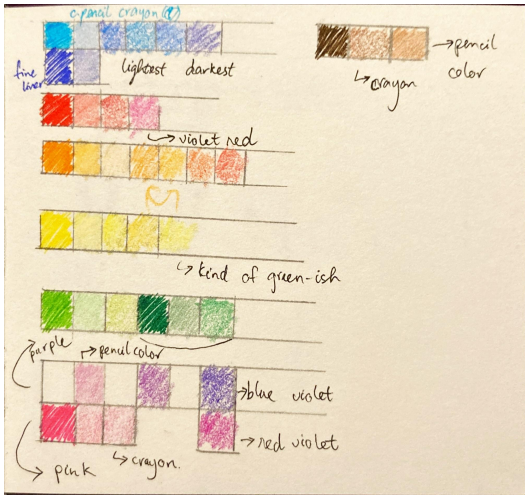 c-pencil crayon (a)
fine
liner
lightest darkest
→ pencil
color
↳ crayon
↳ violet red
↳ kind of green-ish
purple
↱ pencil color
→ blue violet
→ red violet
↳ crayon.
pink